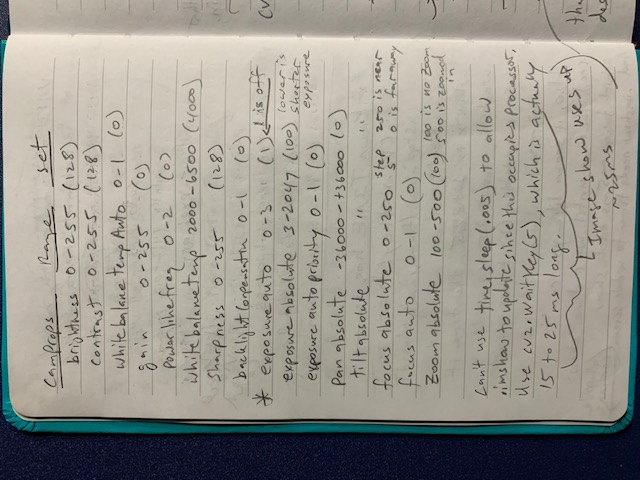 Camprops Range set
brightness 0-255 (128)
contrast 0-255 (128)
whitebalane temp Auto 0-1 (0)
gain 0-255 (0)
powerlinefreq 0-2 (0)
whitebalanetemp 2000-6500 (4000)
sharpness 0-255 (128)
backlight compensatin 0-1 (0)
* exposure auto 0-3 (1) ← 1 is off
exposure absolute 3-2047 (100) lower is shorter exposure
exposure auto priority 0-1 (0)
Pan absolute -36000-+36000 (0)
tilt absolute " "
focus absolute 0-250 step 5 250 is near 0 is far away
focus auto 0-1 (0)
Zoom absolute 100-500 (100) 100 is no zoom 500 is zoomed in
Can't use time.sleep(.005) to allow
.imshow to update since this occupies processor.
Use cv2.waitKey(5), which is actually
15 to 25 ms long.
Image show uses up
~25ms